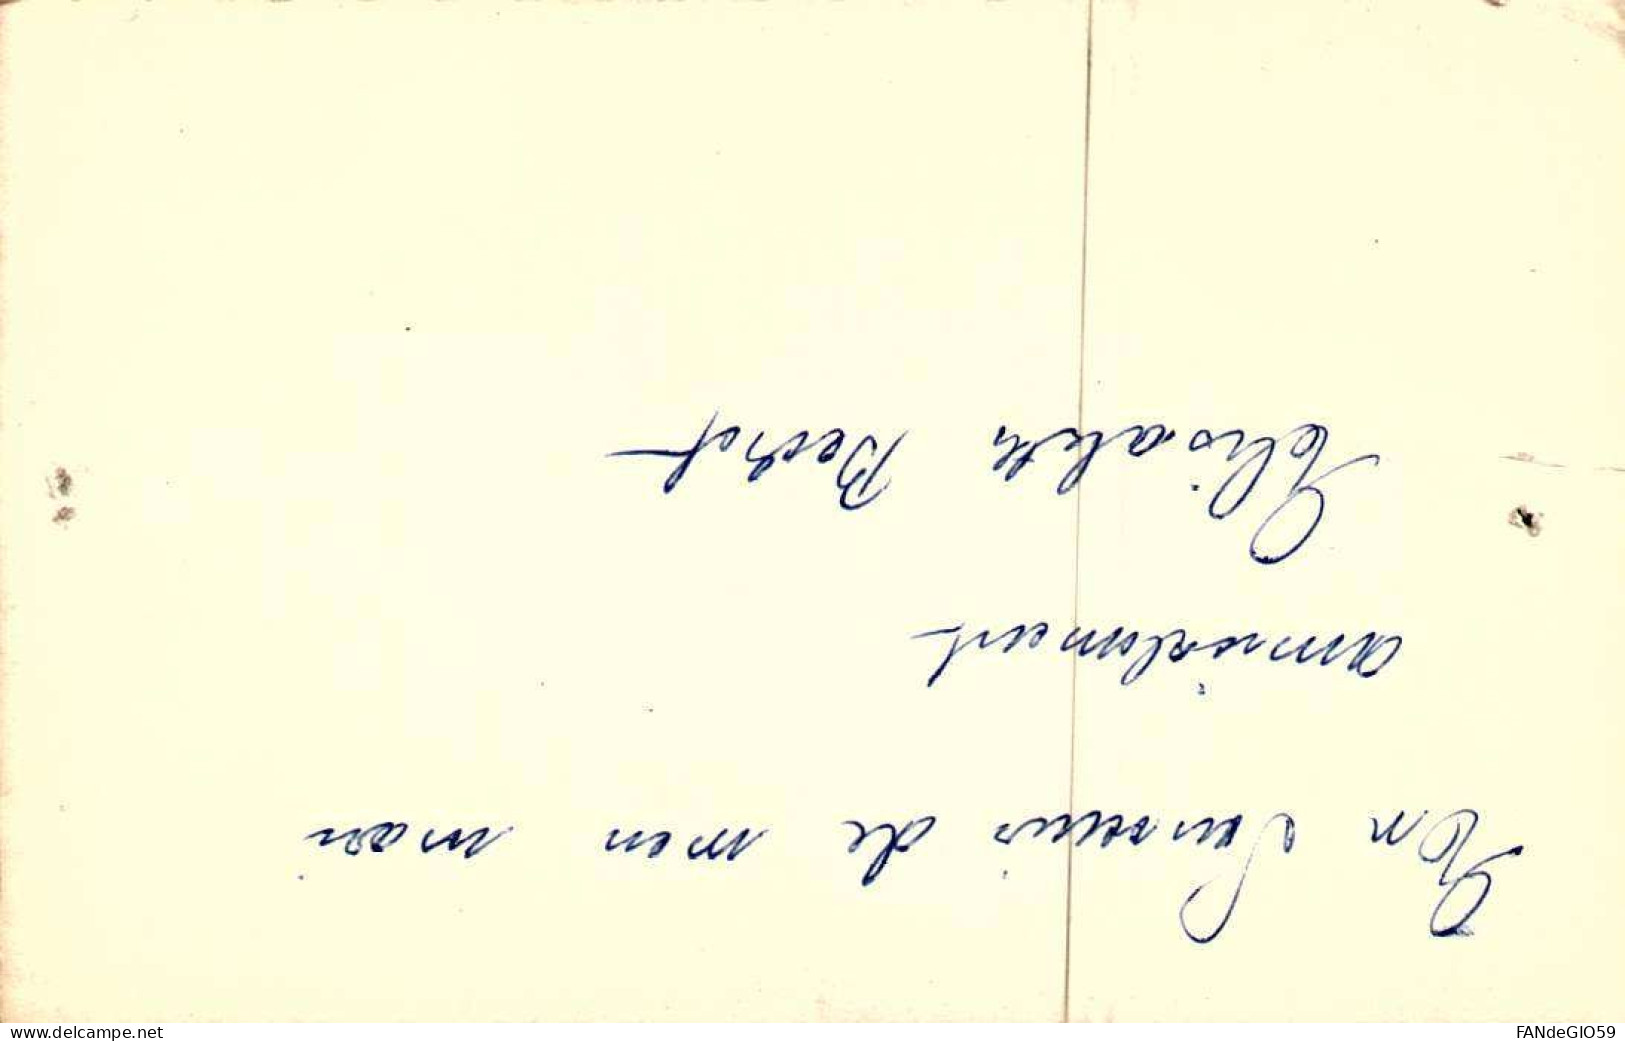 En Souvenir de mon mari
amicalement
Elisabeth
www.delcampe.net
FANdeGIO59